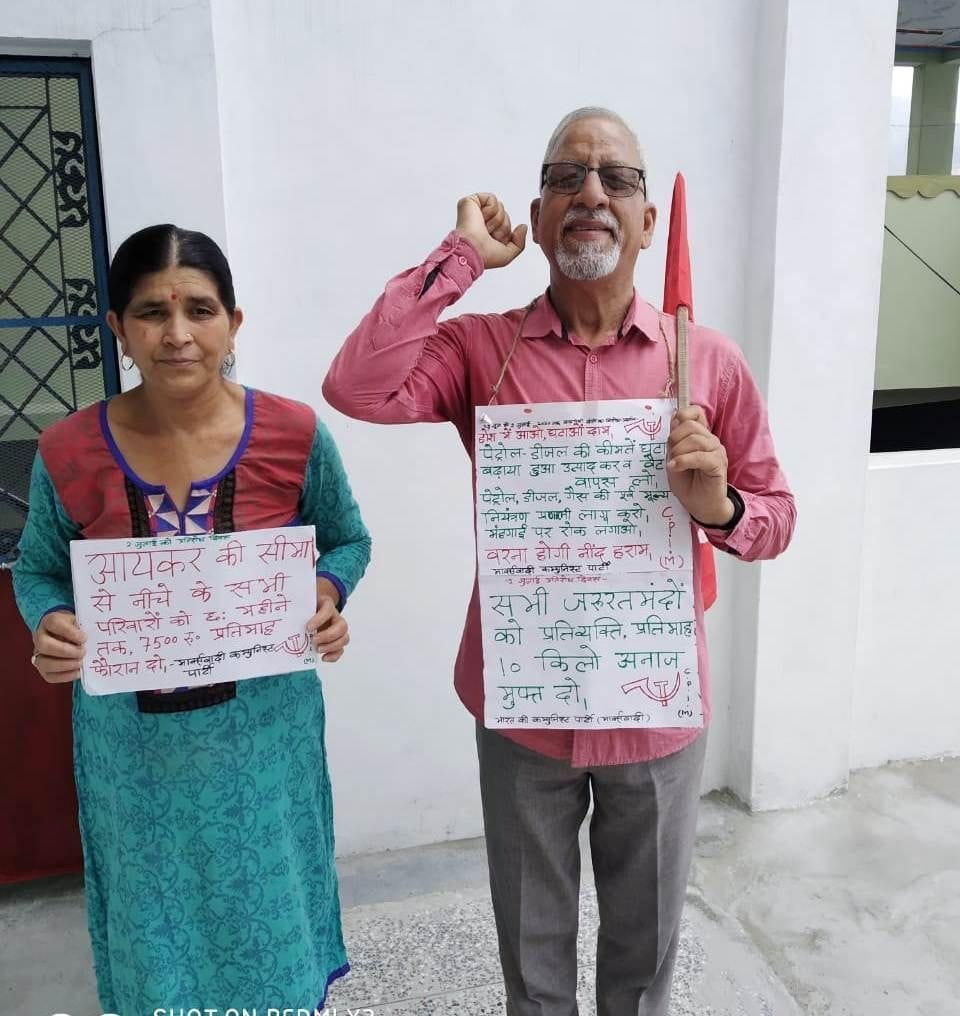 २ जुलाई को प्रतिरोध दिवस
आयकर की सीमा
से नीचे के सभी
परिवारों को छ: महीने
तक, 7500 रु० प्रतिमाह
फौरन दो,-मार्क्सवादी कम्युनिस्ट
पार्टी
(M)
होश में आओ, घटाओ दाम,
पेट्रोल-डीजल की कीमतें घटा
बढ़ाया हुआ उत्पाद कर व वैट
वापस लो,
पेट्रोल, डीजल, गैस की पूर्व मूल्य
नियंत्रण प्रणाली लागू करो,
मंहगाई पर रोक लगाओ,
वरना होगी नींद हराम,
मार्क्सवादी कम्युनिस्ट पार्टी
C
P
I
(M)
२ जुलाई प्रतिरोध दिवस-
सभी जरूरतमंदों
को प्रतिव्यक्ति, प्रतिमाह,
10 किलो अनाज
मुफ्त दो,
भारत की कम्युनिस्ट पार्टी (मार्क्सवादी)
C
P
I
(M)
SHOT ON REDMI Y2